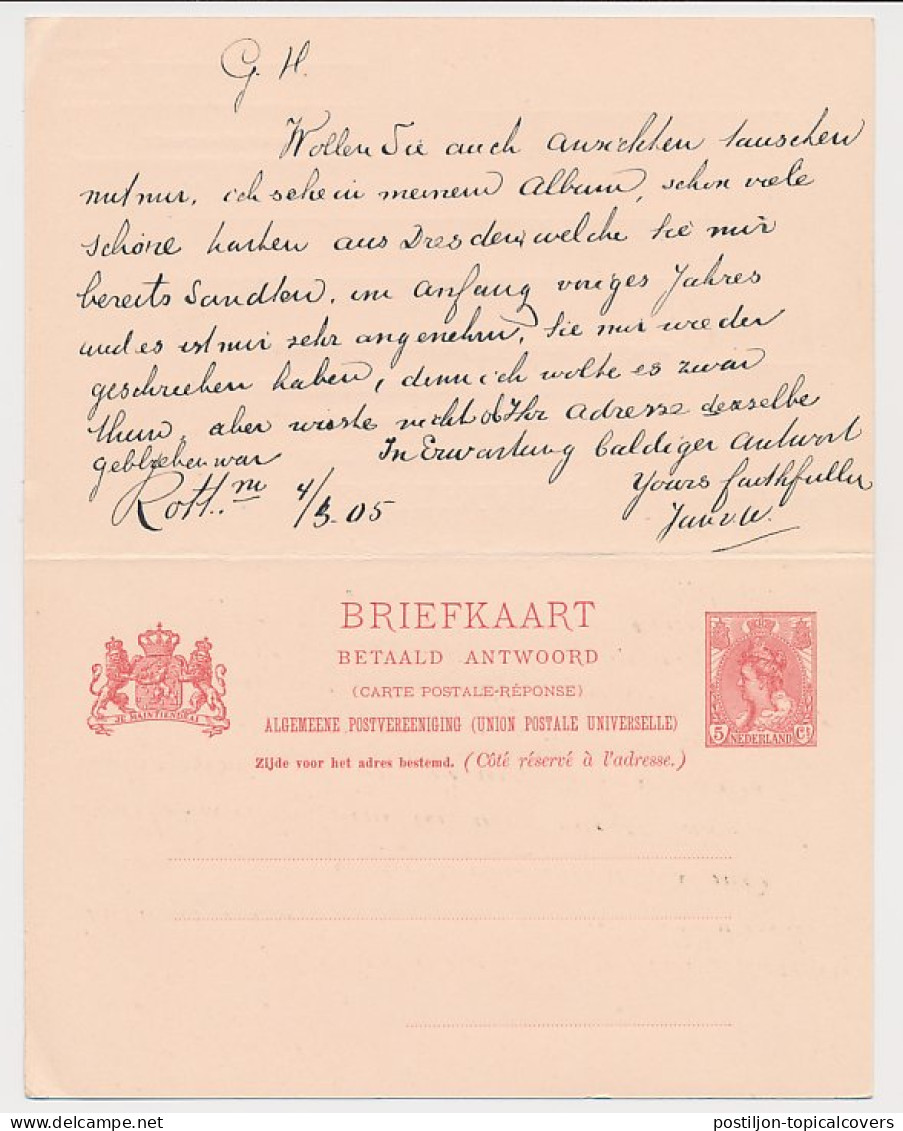 G. H.
Wollen Sie auch Ansichten tauschen
mit mir, ich sehe in meinem Album, schon viele
schöne karten aus Dresden, welche Sie mir
bereits sandten, im Anfang voriges Jahres
und es ist mir sehr angenehm, Sie mir wieder
geschrieben haben, denn ich wollte es zwar
thun, aber wisste nicht ob Ihr Adresse derselbe
geblieben war In Erwartung baldiger Antwort
Yours faithfully
Rott.m 4/3.05
BRIEFKAART
BETAALD ANTWOORD
(CARTE POSTALE-RÉPONSE)
ALGEMEENE POSTVEREENIGING (UNION POSTALE UNIVERSELLE)
Zijde voor het adres bestemd. (Côté réservé à l'adresse.)
JE MAINTIENDRAI
5 NEDERLAND Ct
www.delcampe.net postiljon-topicalcovers